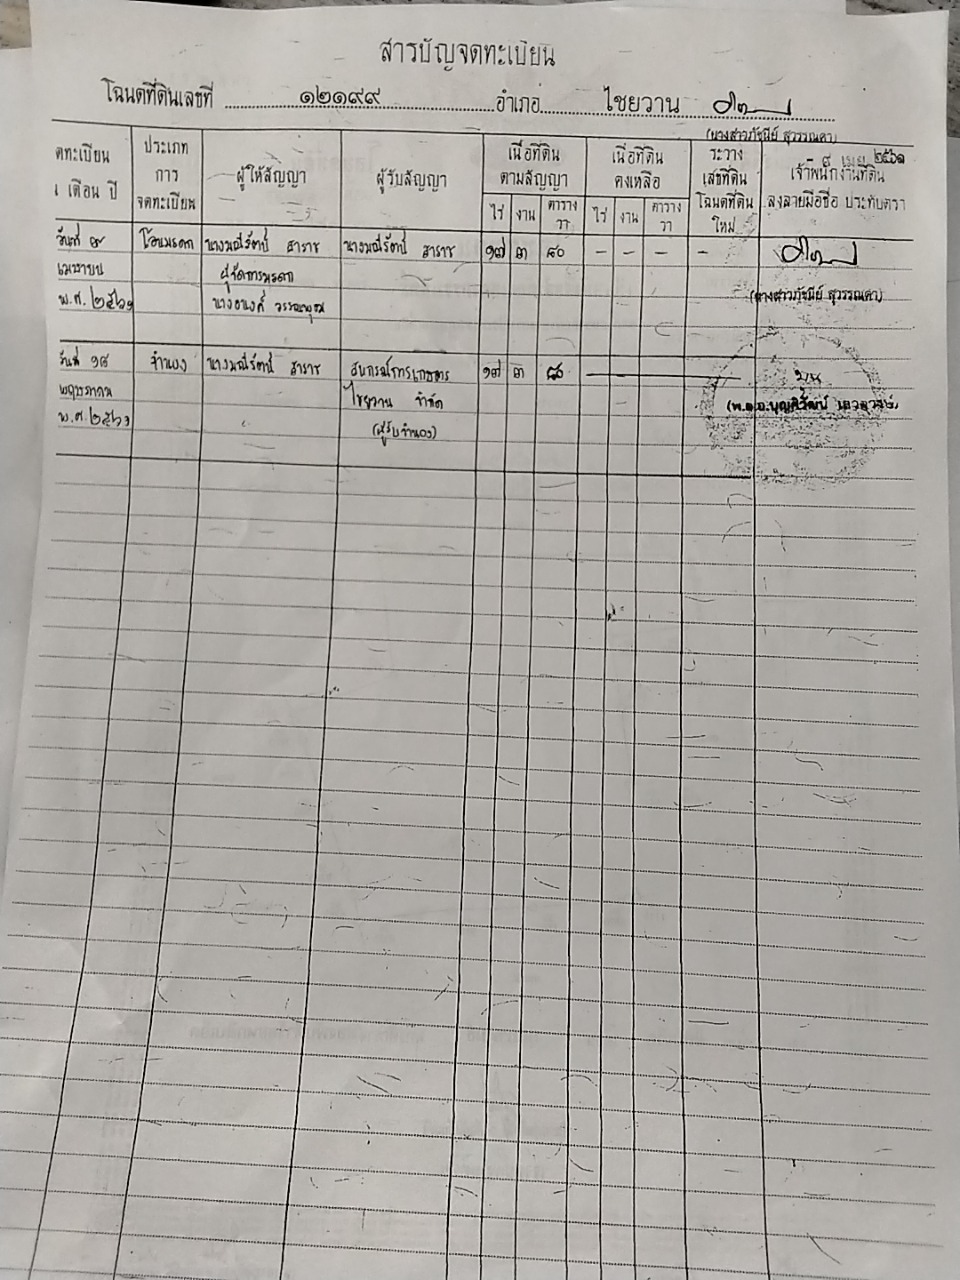 สารบัญจดทะเบียน
โฉนดที่ดินเลขที่ ๑๒๑๙๙ อำเภอ ไชยวาน
(นางสาวภัชนีย์ สุวรรณคา)
๙ เม.ย. ๒๕๖๑
ดทะเบียน
เดือน ปี
ประเภท
การ
จดทะเบียน
ผู้ให้สัญญา
ผู้รับสัญญา
เนื้อที่ดิน
ตามสัญญา
เนื้อที่ดิน
คงเหลือ
ระวาง
เลขที่ดิน
โฉนดที่ดิน
ใหม่
เจ้าพนักงานที่ดิน
ลงลายมือชื่อ ประทับตรา
ไร่ งาน ตาราง วา ไร่ งาน ตาราง วา
วันที่ โอนมรดก นางมณีรัตน์ สาราช นางมณีรัตน์ สาราช ๑๗ ๓ ๘๐ – – – –
เมษายน ผู้จัดการมรดก
พ.ศ. ๒๕๖๑ (นางสาวภัชนีย์ สุวรรณคา)
วันที่ ๑๘ จำนอง นางมณีรัตน์ สาราช สหกรณ์การเกษตร ๑๗ ๓ ๘๐
พฤษภาคม ไชยวาน จำกัด
พ.ศ. ๒๕๖๑ (ผู้รับจำนอง)